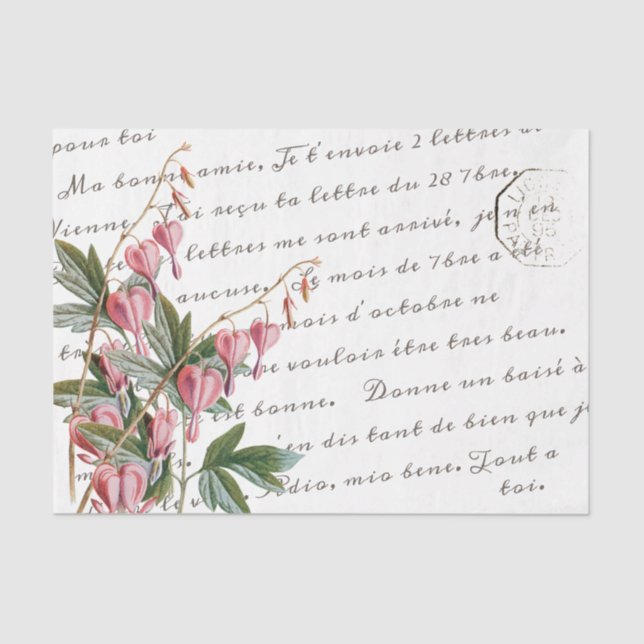 pour toi
Ma bonne amie, Je t'envoie 2 lettres de
Vienne. J'ai reçu ta lettre du 28 7bre.
lettres me sont arrivé, je n'en
aucuse. Le mois de 7bre a été
mois d'octobre ne
vouloir étre tres beau.
est bonne. Donne un baisé à
j'en dis tant de bien que je
Adio, mio bene. Tout a
toi.